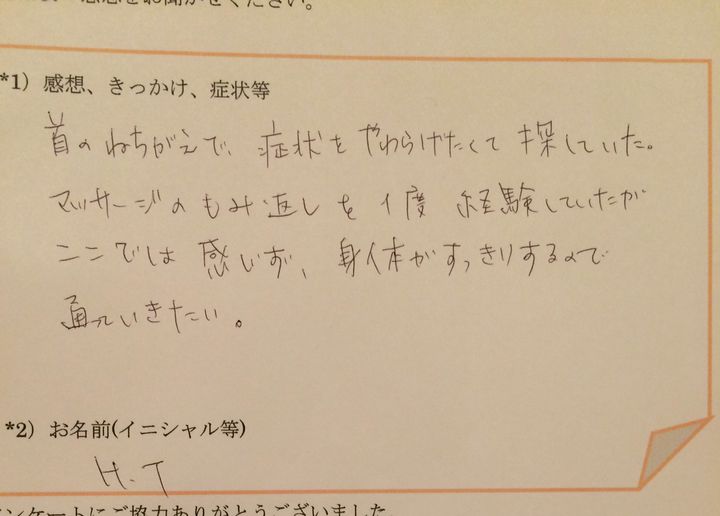 感想をお聞かせください。
*1) 感想、きっかけ、症状等
首のねちがえで、症状をやわらげたくて探していた。
マッサージのもみ返しを1度経験していたが
ここでは感じず、身体がすっきりするので
通っていきたい。
*2) お名前(イニシャル等)
H.T
ンケートにご協力ありがとうございました